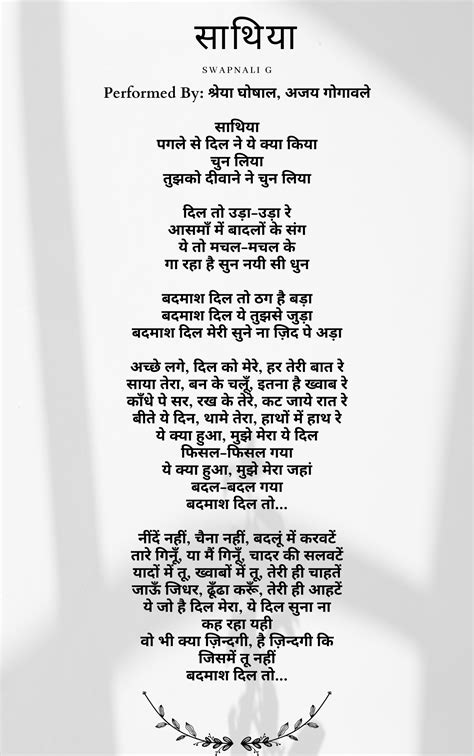 साथिया
SWAPNALI G
Performed By: श्रेया घोषाल, अजय गोगावले
साथिया
पगले से दिल ने ये क्या किया
चुन लिया
तुझको दीवाने ने चुन लिया
दिल तो उड़ा-उड़ा रे
आसमाँ में बादलों के संग
ये तो मचल-मचल के
गा रहा है सुन नयी सी धुन
बदमाश दिल तो ठग है बड़ा
बदमाश दिल ये तुझसे जुड़ा
बदमाश दिल मेरी सुने ना ज़िद पे अड़ा
अच्छे लगे, दिल को मेरे, हर तेरी बात रे
साया तेरा, बन के चलूँ, इतना है ख्वाब रे
काँधे पे सर, रख के तेरे, कट जाये रात रे
बीते ये दिन, थामे तेरा, हाथों में हाथ रे
ये क्या हुआ, मुझे मेरा ये दिल
फिसल-फिसल गया
ये क्या हुआ, मुझे मेरा जहां
बदल-बदल गया
बदमाश दिल तो...
नींदें नहीं, चैना नहीं, बदलूं में करवटें
तारे गिनूँ, या मैं गिनूँ, चादर की सलवटें
यादों में तू, ख्वाबों में तू, तेरी ही चाहतें
जाऊँ जिधर, ढूँढा करूँ, तेरी ही आहटें
ये जो है दिल मेरा, ये दिल सुना ना
कह रहा यही
वो भी क्या ज़िन्दगी, है ज़िन्दगी कि
जिसमें तू नहीं
बदमाश दिल तो...